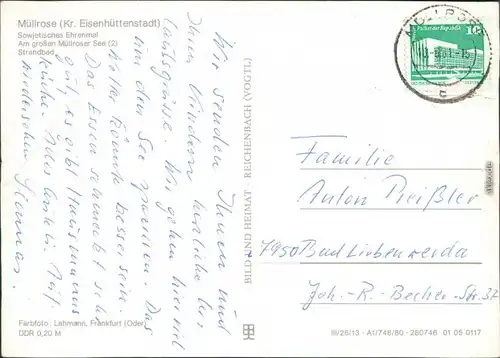 Müllrose (Kr. Eisenhüttenstadt)
Sowjetisches Ehrenmal
Am großen Müllroser See (2)
Strandbad
Wir senden Ihnen und
Ihren Kindern herzliche Ur-
laubsgrüsse. Wir gehen hier viel
um den See spazieren. Das
Wetter könnte besser sein.
Das Essen schmeckt sehr
gut, es gibt Hausmanns
küche. Alles Gute! Auf
Wiedersehen
BILD UND HEIMAT REICHENBACH (VOGTL)
Farbfoto: Lahmann, Frankfurt (Oder)
DDR 0,20 M
MÜLLROSE
Palast der Republik
10
Familie
Anton Preißler
7950 Bad Liebenwerda
Joh.-R.-Becher-Str. 32
III/26/13 A1/746/80 280746 01 05 0117